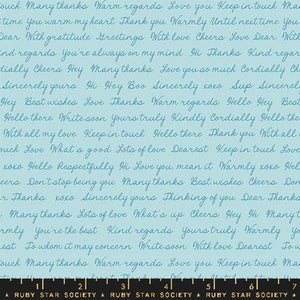 ouch Many thanks Warm regards Hello Love you Keep in touch
time You warm my heart Thank you Warmly Until next time You
Dear With gratitude Greetings With love Cheers Love Dear With
nd regards You're always on my mind Hi Thanks Kind regard
dially Cheers Hey Many thanks Love you so much Cordially Ch
Sincerely yours Hi Hey Boo Sincerely xoxo Sup Sincerel
Hey Best wishes Love Thanks Warm regards Hello Hey
Hello there Write soon Yours truly Kindly Cordially Hello the
With all my love Keep in touch Hello there Thank you With al
ouch Love What's good Lots of love Dearest Keep in touch
xoxo Hello Respectfully Hi Love you, mean it Warmly xoxo
eers Don't stop being you Many thanks Best wishes Cheers
r Thanks Sincerely yours Thinking of you Dear Thanks
Many thanks Lots of love What's up Cheers Hey Hi Many
rmly You're the best Kind regards Yours truly Warmly
est To whom it may concern Write soon With love Dearest To
Keep in touch Many thanks Warm regards Hello Love
1 2 3 4 5 6 7
RUBY STAR SOCIETY RUBY STAR SOCIETY RUBY STAR SOCIETY